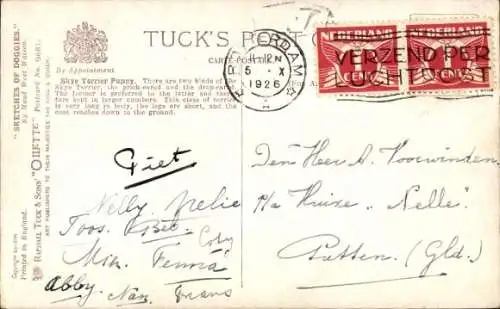 TUCK'S POST
CARTE POSTALE
By Appointment.
"SKETCHES OF DOGGIES."
Raphael Tuck & Sons' "OILETTE" Postcard No. 9681.
ART PUBLISHERS TO THEIR MAJESTIES THE KING & QUEEN.
Printed in England.
Skye Terrier Puppy. There are two kinds of the
Skye Terrier, the prick-eared and the drop-eared.
The former is preferred to the latter and there-
fore kept in larger numbers. This class of terrier
is very long in body, the legs are short, and the
coat reaches down to the ground.
ROTTERDAM
5 X
1926
NEDERLAND
CENT
NEDERLAND
CENT
VERZEND PER
LUCHTPOST
Piet
Nelly
Toos
Coby
Mien Fenna
Abby
Frans
Den Heer A. Voorwinden
p/a Huize "Nelle"
Putten (Gld.)